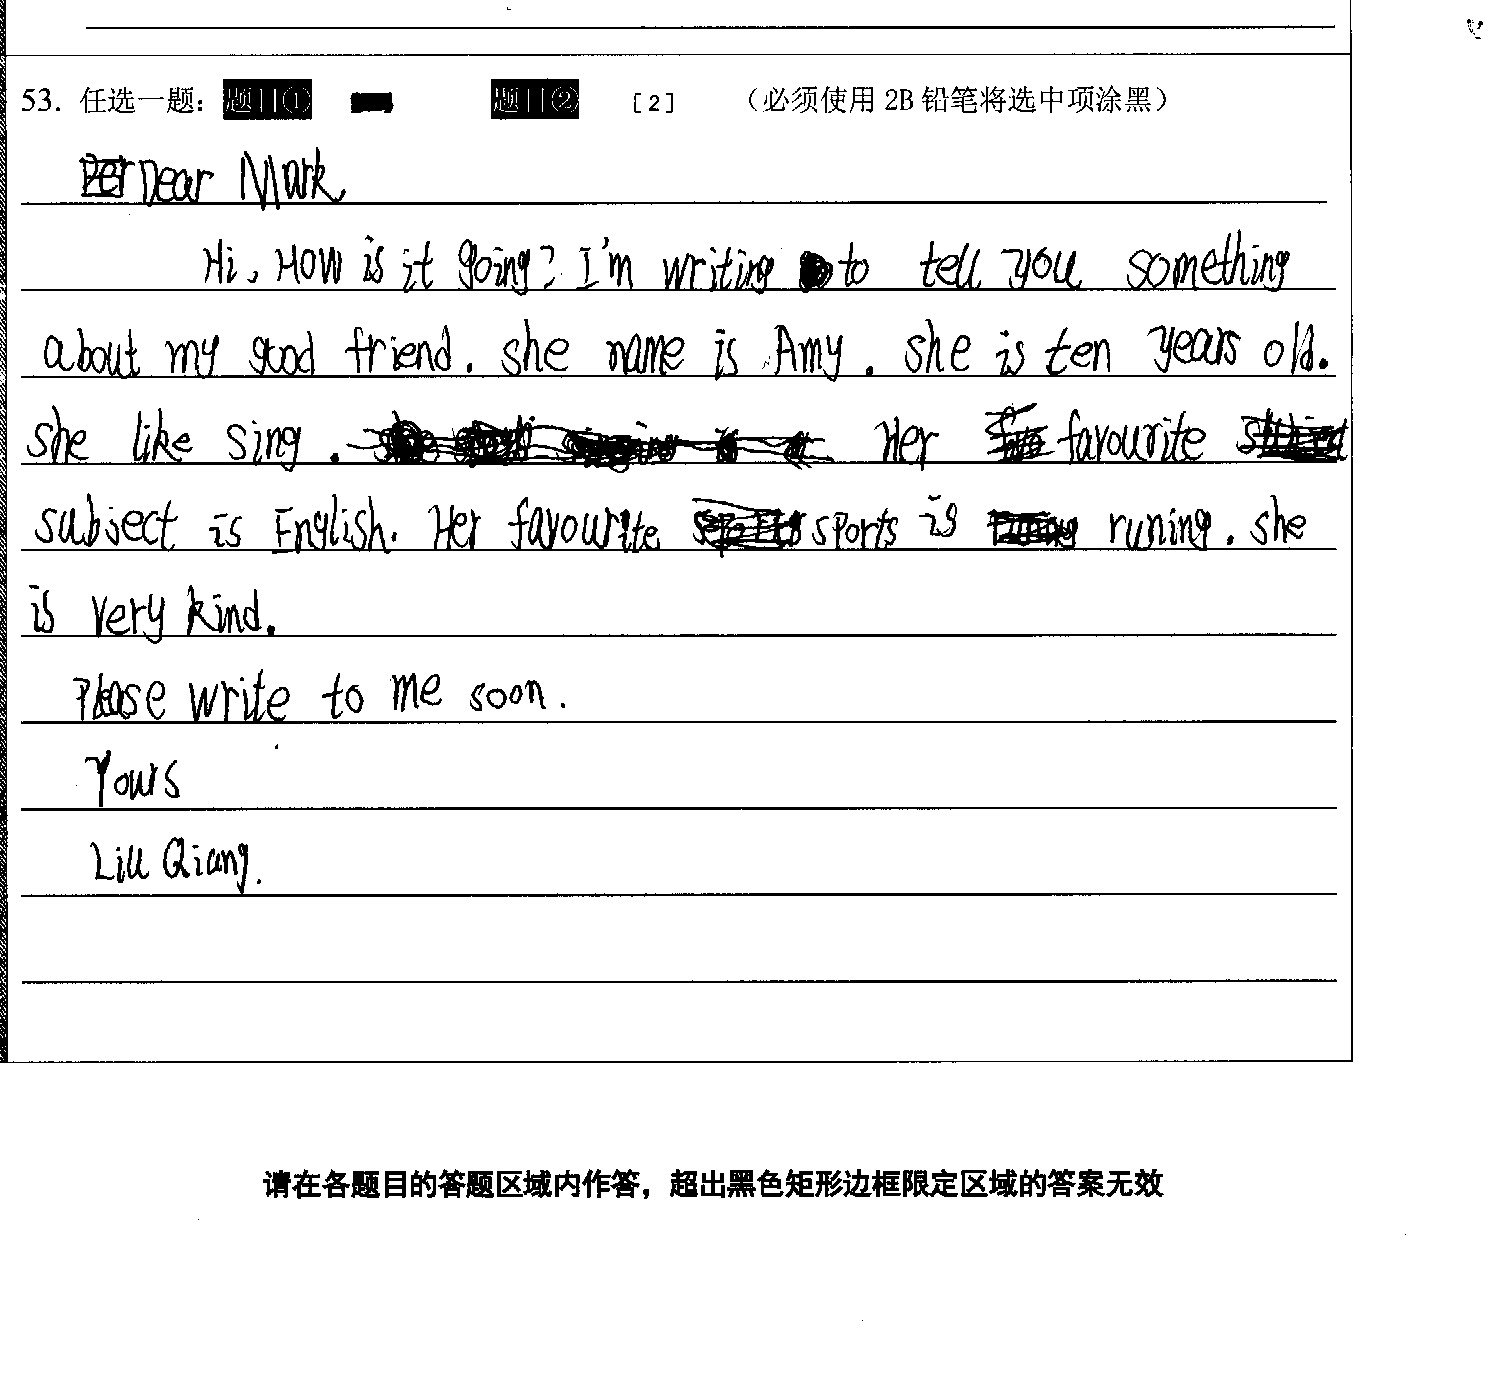 53. 任选一题： 题目① 题目② [2] （必须使用 2B 铅笔将选中项涂黑）
Dear Mark,
Hi, How is it going? I'm writing to tell you something
about my good friend. she name is Amy. she is ten years old.
she like sing. Her favourite
subject is English. Her favourite sports is runing. she
is very kind.
Please write to me soon.
Yours
Liu Qiang.
请在各题目的答题区域内作答，超出黑色矩形边框限定区域的答案无效